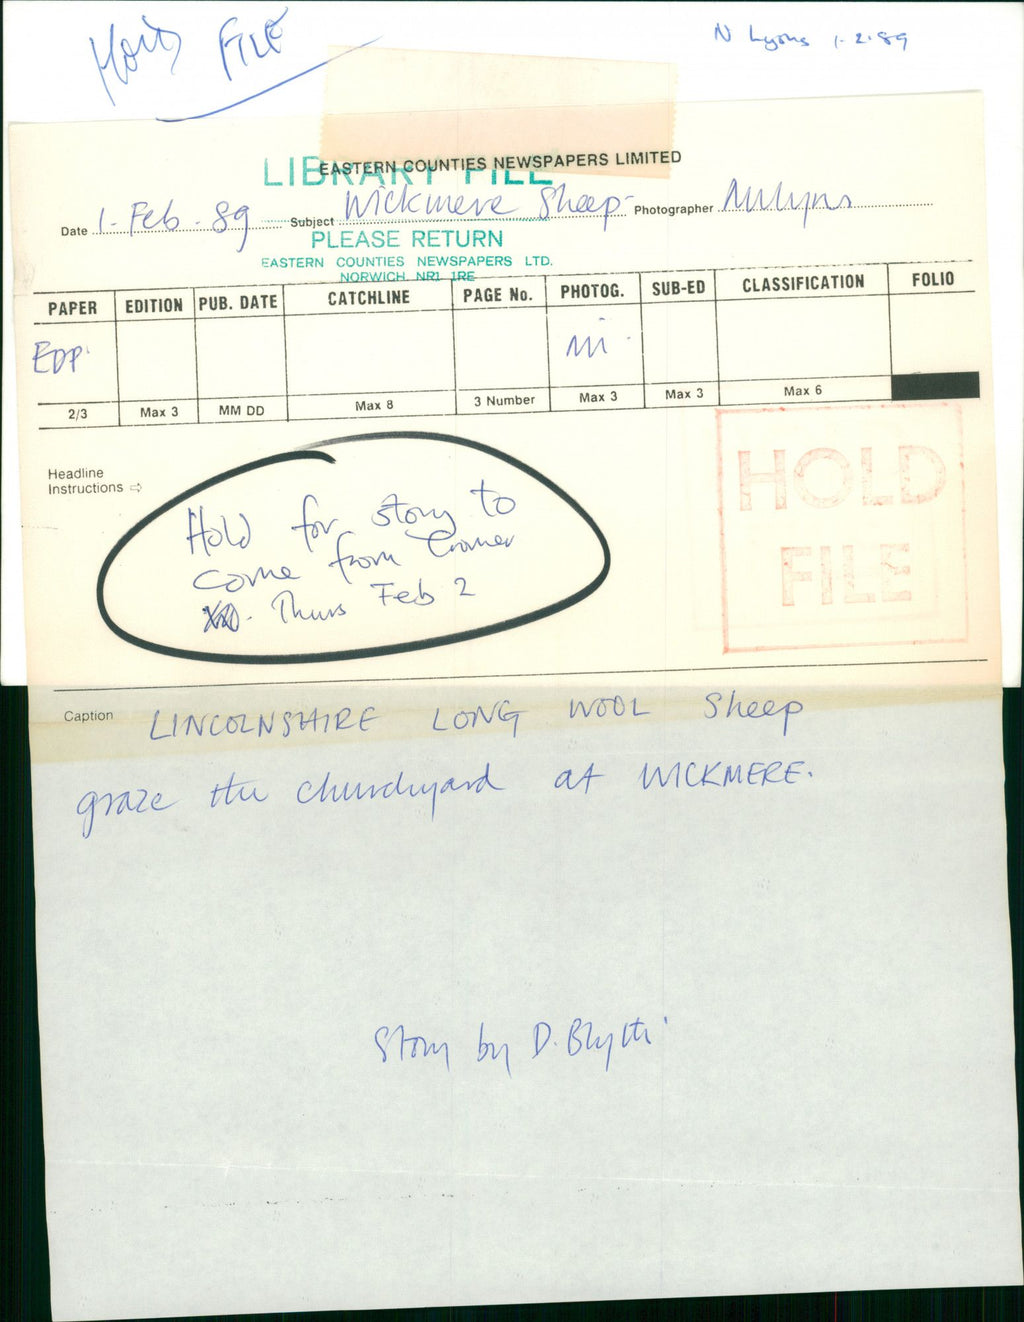 Hold FILE
N Lyons 1-2-89
EASTERN COUNTIES NEWSPAPERS LIMITED
LIBRARY FILE
Date 1-Feb-89 Subject Wickmere Sheep- Photographer
PLEASE RETURN
EASTERN COUNTIES NEWSPAPERS LTD.
NORWICH, NR1 1RE
PAPER EDITION PUB. DATE CATCHLINE PAGE No. PHOTOG. SUB-ED CLASSIFICATION FOLIO
EDP
2/3 Max 3 MM DD Max 8 3 Number Max 3 Max 3 Max 6
Headline
Instructions ⇨
HOLD
FILE
Hold for story to
come from Cromer
Thurs Feb 2
Caption LINCOLNSHIRE LONG WOOL Sheep
graze the churchyard at WICKMERE.
Story by D. Blyth